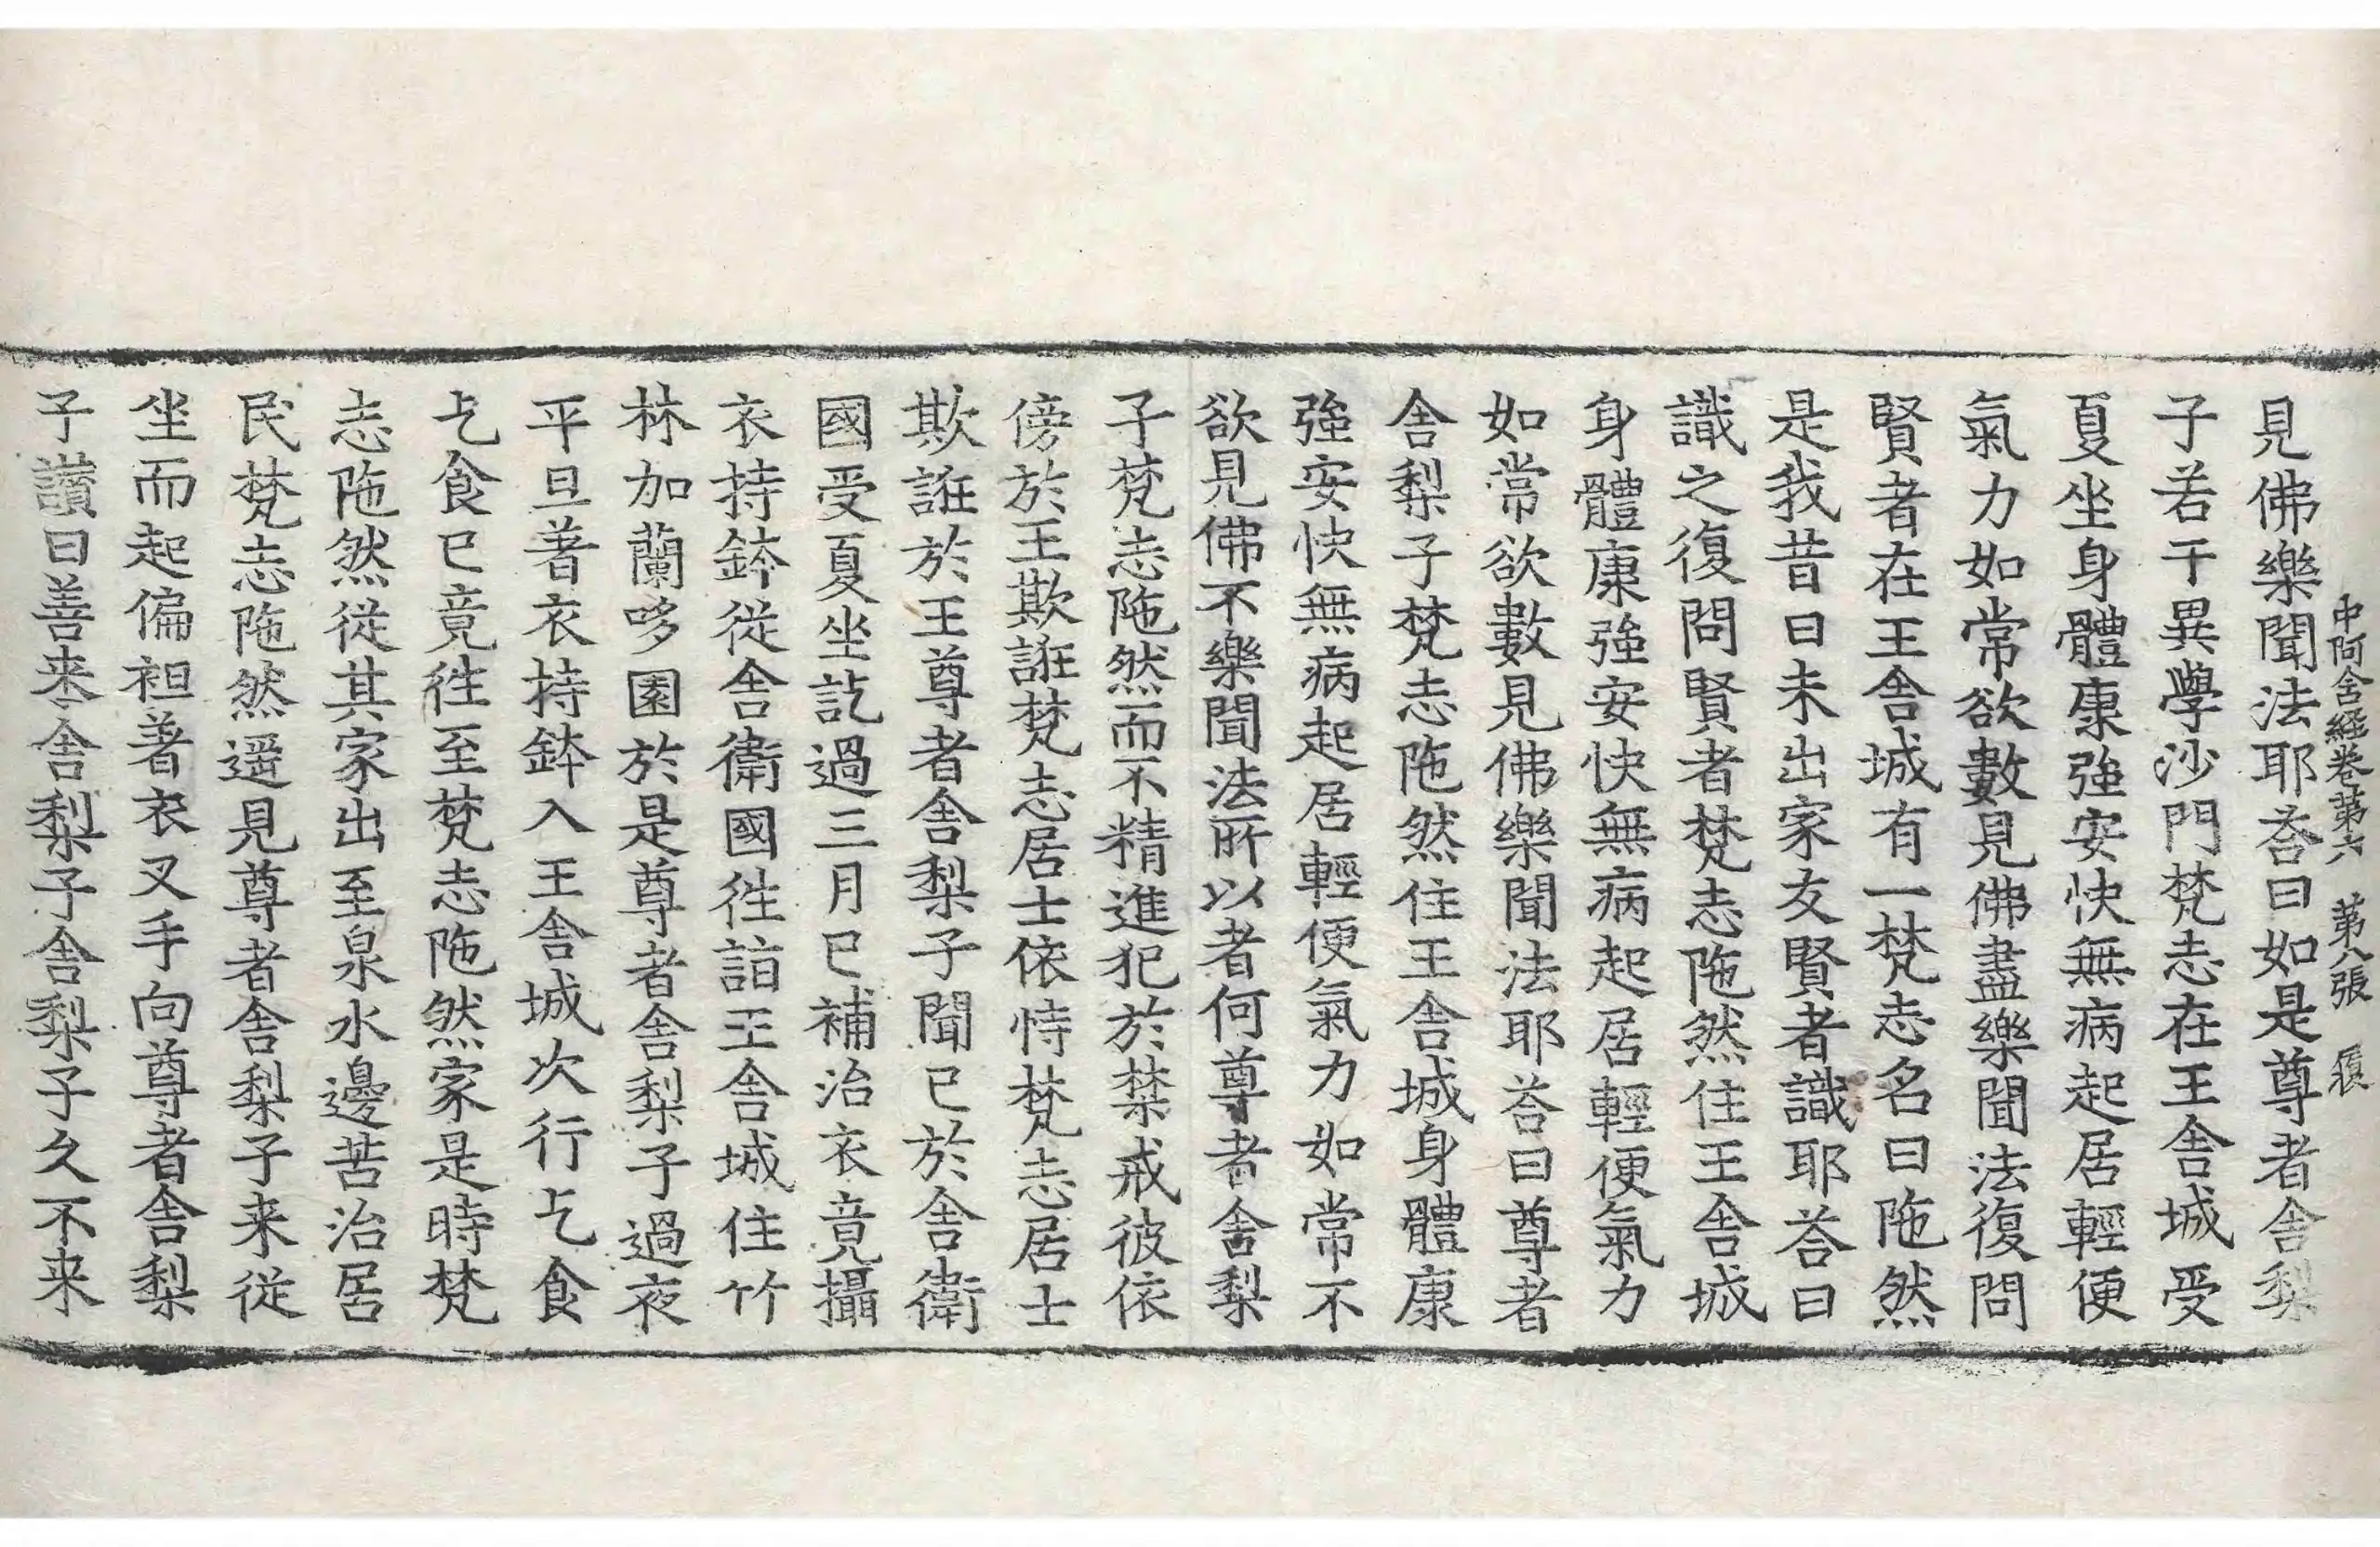 中阿含經卷第六　第八張　履
見佛樂聞法耶荅曰如是尊者舍梨
子若干異學沙門梵志在王舍城受
夏坐身體康強安快無病起居輕便
氣力如常欲數見佛盡樂聞法復問
賢者在王舍城有一梵志名曰陁然
是我昔日未出家友賢者識耶荅曰
識之復問賢者梵志陁然住王舍城
身體康強安快無病起居輕便氣力
如常欲數見佛樂聞法耶荅曰尊者
舍梨子梵志陁然住王舍城身體康
強安快無病起居輕便氣力如常不
欲見佛不樂聞法所以者何尊者舍梨
子梵志陁然而不精進犯於禁戒彼依
傍於王欺誑梵志居士依恃梵志居士
欺誑於王尊者舍梨子聞已於舍衛
國受夏坐訖過三月已補治衣竟攝
衣持鉢從舍衛國徃詣王舍城住竹
林加蘭哆園於是尊者舍梨子過夜
平旦著衣持鉢入王舍城次行乞食
乞食已竟徃至梵志陁然家是時梵
志陁然從其家出至泉水邊苦治居
民梵志陁然遥見尊者舍梨子来從
坐而起偏袒著衣叉手向尊者舍梨
子讃曰善来舍梨子舍梨子久不来